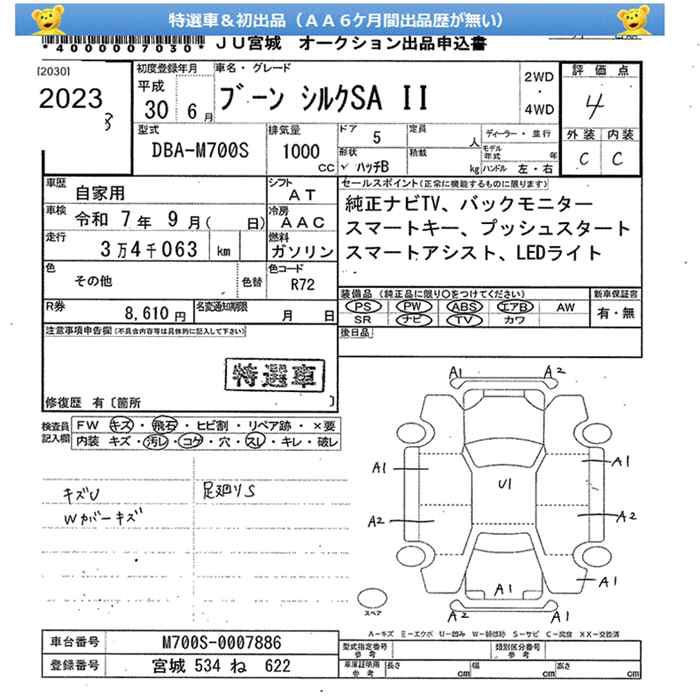 特選車＆初出品（ＡＡ６ケ月間出品歴が無い）
*4000007030* ＪＵ宮城 オークション出品申込書
[2030]
2023 3
初度登録年月
平成 30 6月
車名・グレード
ブーン シルクSA II
2WD
・
4WD
評価点
4
外装 内装
C C
型式
DBA-M700S
排気量
1000 CC
ドア 5
定員 人
ディーラー・並行
形状
ハッチB
積載 kg
モデル年式 年
ハンドル 左・右
車歴
自家用
シフト
ＡＴ
車検
令和 7年 9月( 日)
冷房
ＡＡＣ
走行
3万4千063 km
燃料
ガソリン
色
その他
色替
色コード
R72
R券
8,610円
名変通知期限
月 日
セールスポイント(正常に機能するものに限ります)
純正ナビTV、バックモニター
スマートキー、プッシュスタート
スマートアシスト、LEDライト
装備品 (純正品に限り〇をつけてください)
新車保証書
PS PW ABS エアB AW
有・無
SR ナビ TV カワ
後日品
注意事項申告欄(不具合内容等は具体的に記入して下さい)
特選車
修復歴 有〔箇所 〕
検査員
記入欄
ＦＷ キズ・飛石・ヒビ割・リペア跡・×要
内装 キズ・汚レ・コゲ・穴・スレ・キレ・破レ
キズU
Wカバーキズ
足廻りS
A1 A2
A1 A1
U1
A2 A2
A1 A1
A2 A1
スペア
A－キズ E－エクボ U－凹み W－補修跡 S－サビ C－腐食 XX－交換済
車台番号
M700S-0007886
登録番号
宮城 534 ね 622
型式指定番号
参考
類別区分番号
参考
車庫証明用
参考
長さ cm 幅 cm 高さ cm